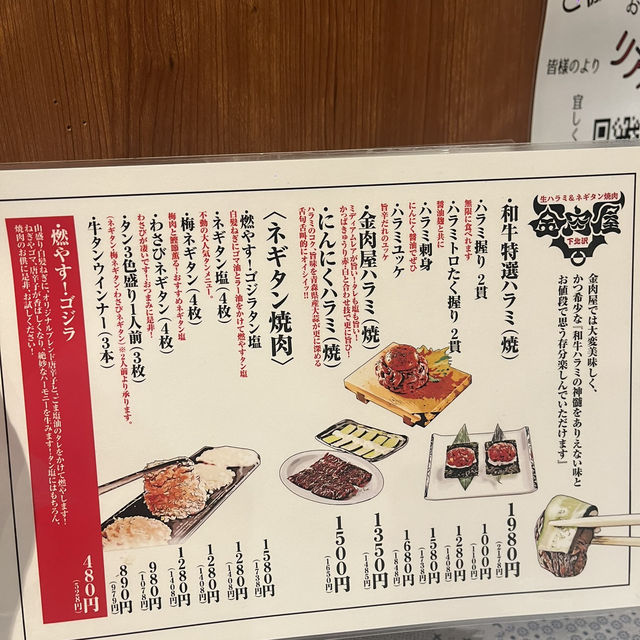 皆様のより
宜しく
生ハラミ&ネギタン焼肉
金肉屋
下北沢
金肉屋では大変美味しく、
かつ希少な『和牛ハラミの神髄をありえない味と
お値段で思う存分楽しんでいただけます』
・和牛特選ハラミ(焼) 1980円(2178円)
・ハラミ握り 2貫 1000円(1100円)
無限に食べれます
・ハラミトロたく握り 2貫 1280円(1408円)
醤油麹と共に
・ハラミ刺身 1580円(1738円)
にんにく醤油でぜひ
・ハラミユッケ 1680円(1848円)
旨辛だれのユッケ
・金肉屋ハラミ(焼) 1350円(1485円)
ミディアムレアが旨い!タレも塩も旨い!
かっぱきゅうり赤・白と合わせ技で更に旨ひ!
・にんにくハラミ(焼) 1500円(1650円)
ハラミのコク、旨味を青森県産大蒜が更に深める
舌旬舌満的にオイシイッ!!
〈ネギタン焼肉〉
・燃やす!ゴジラタン塩 1580円(1738円)
白髪ねぎにゴマ油とラー油をかけて燃やすタン塩
・ネギタン塩(4枚) 1280円(1408円)
不動の大人気タンメニュー。
・梅ネギタン(4枚) 1280円(1408円)
梅肉と鰹節薫る!おすすめネギタン塩
・わさびネギタン(4枚) 1280円(1408円)
わさびが凄いです!おつまみに是非!
・タン3色盛り1人前(3枚) 980円(1078円)
(ネギタン・梅ネギタン・わさびネギタン)※2人前より承ります。
・牛タンウインナー(3本) 890円(979円)
・燃やす!ゴジラ 480円(528円)
山盛り白髪ねぎに、オリジナルブレンド唐辛子と、ごま塩油のタレをかけて燃やします!
ねぎやゴマ、唐辛子が香ばしくなり、絶妙なハーモニーを生みます!タン塩にはもちろん、
焼肉のお供に是非、お試しください!